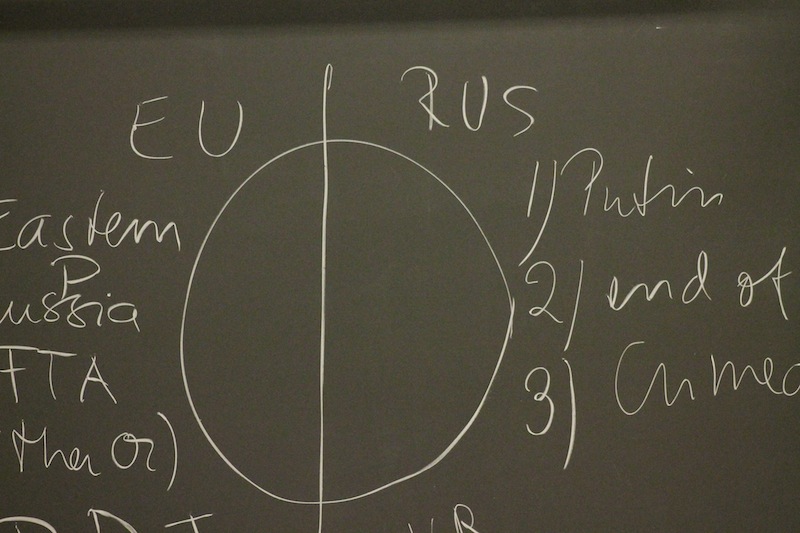 EU
RUS
Eastern
P
ussia
FTA
ther or)
1) Putin
2) end of
3) Crimea